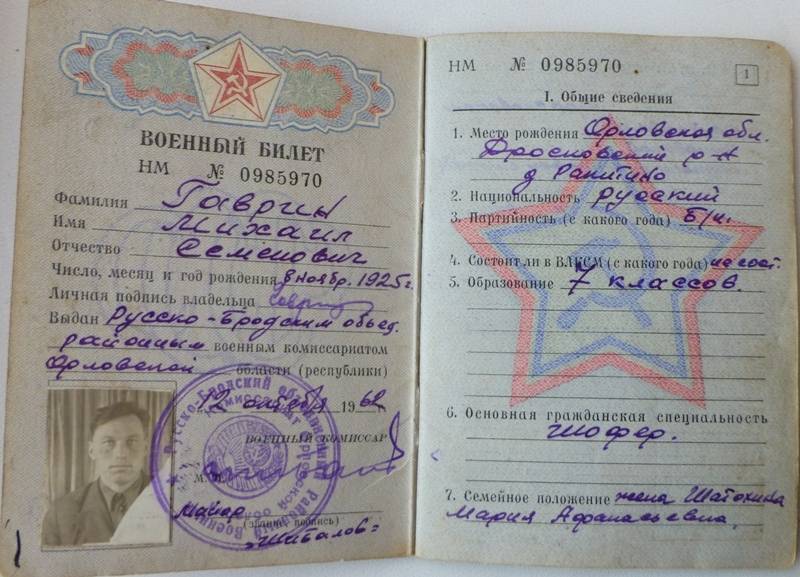 ВОЕННЫЙ БИЛЕТ
НМ № 0985970
Фамилия Гаврин
Имя Михаил
Отчество Семенович
Число, месяц и год рождения 8 ноябр. 1925 г.
Личная подпись владельца
Выдан Русско-Бродским объед.
районным военным комиссариатом
Орловской области (республики)
1962
ВОЕННЫЙ КОМИССАР
М. П.
Майор (звание, подпись)
НМ № 0985970
1
I. Общие сведения
1. Место рождения Орловская обл.
р-н
д Ракитино
2. Национальность русский
3. Партийность (с какого года) б/п.
4. Состоит ли в ВЛКСМ (с какого года) не сост.
5. Образование 7 классов.
6. Основная гражданская специальность
шофер.
7. Семейное положение жена Шатохина
Мария Афанасьевна.